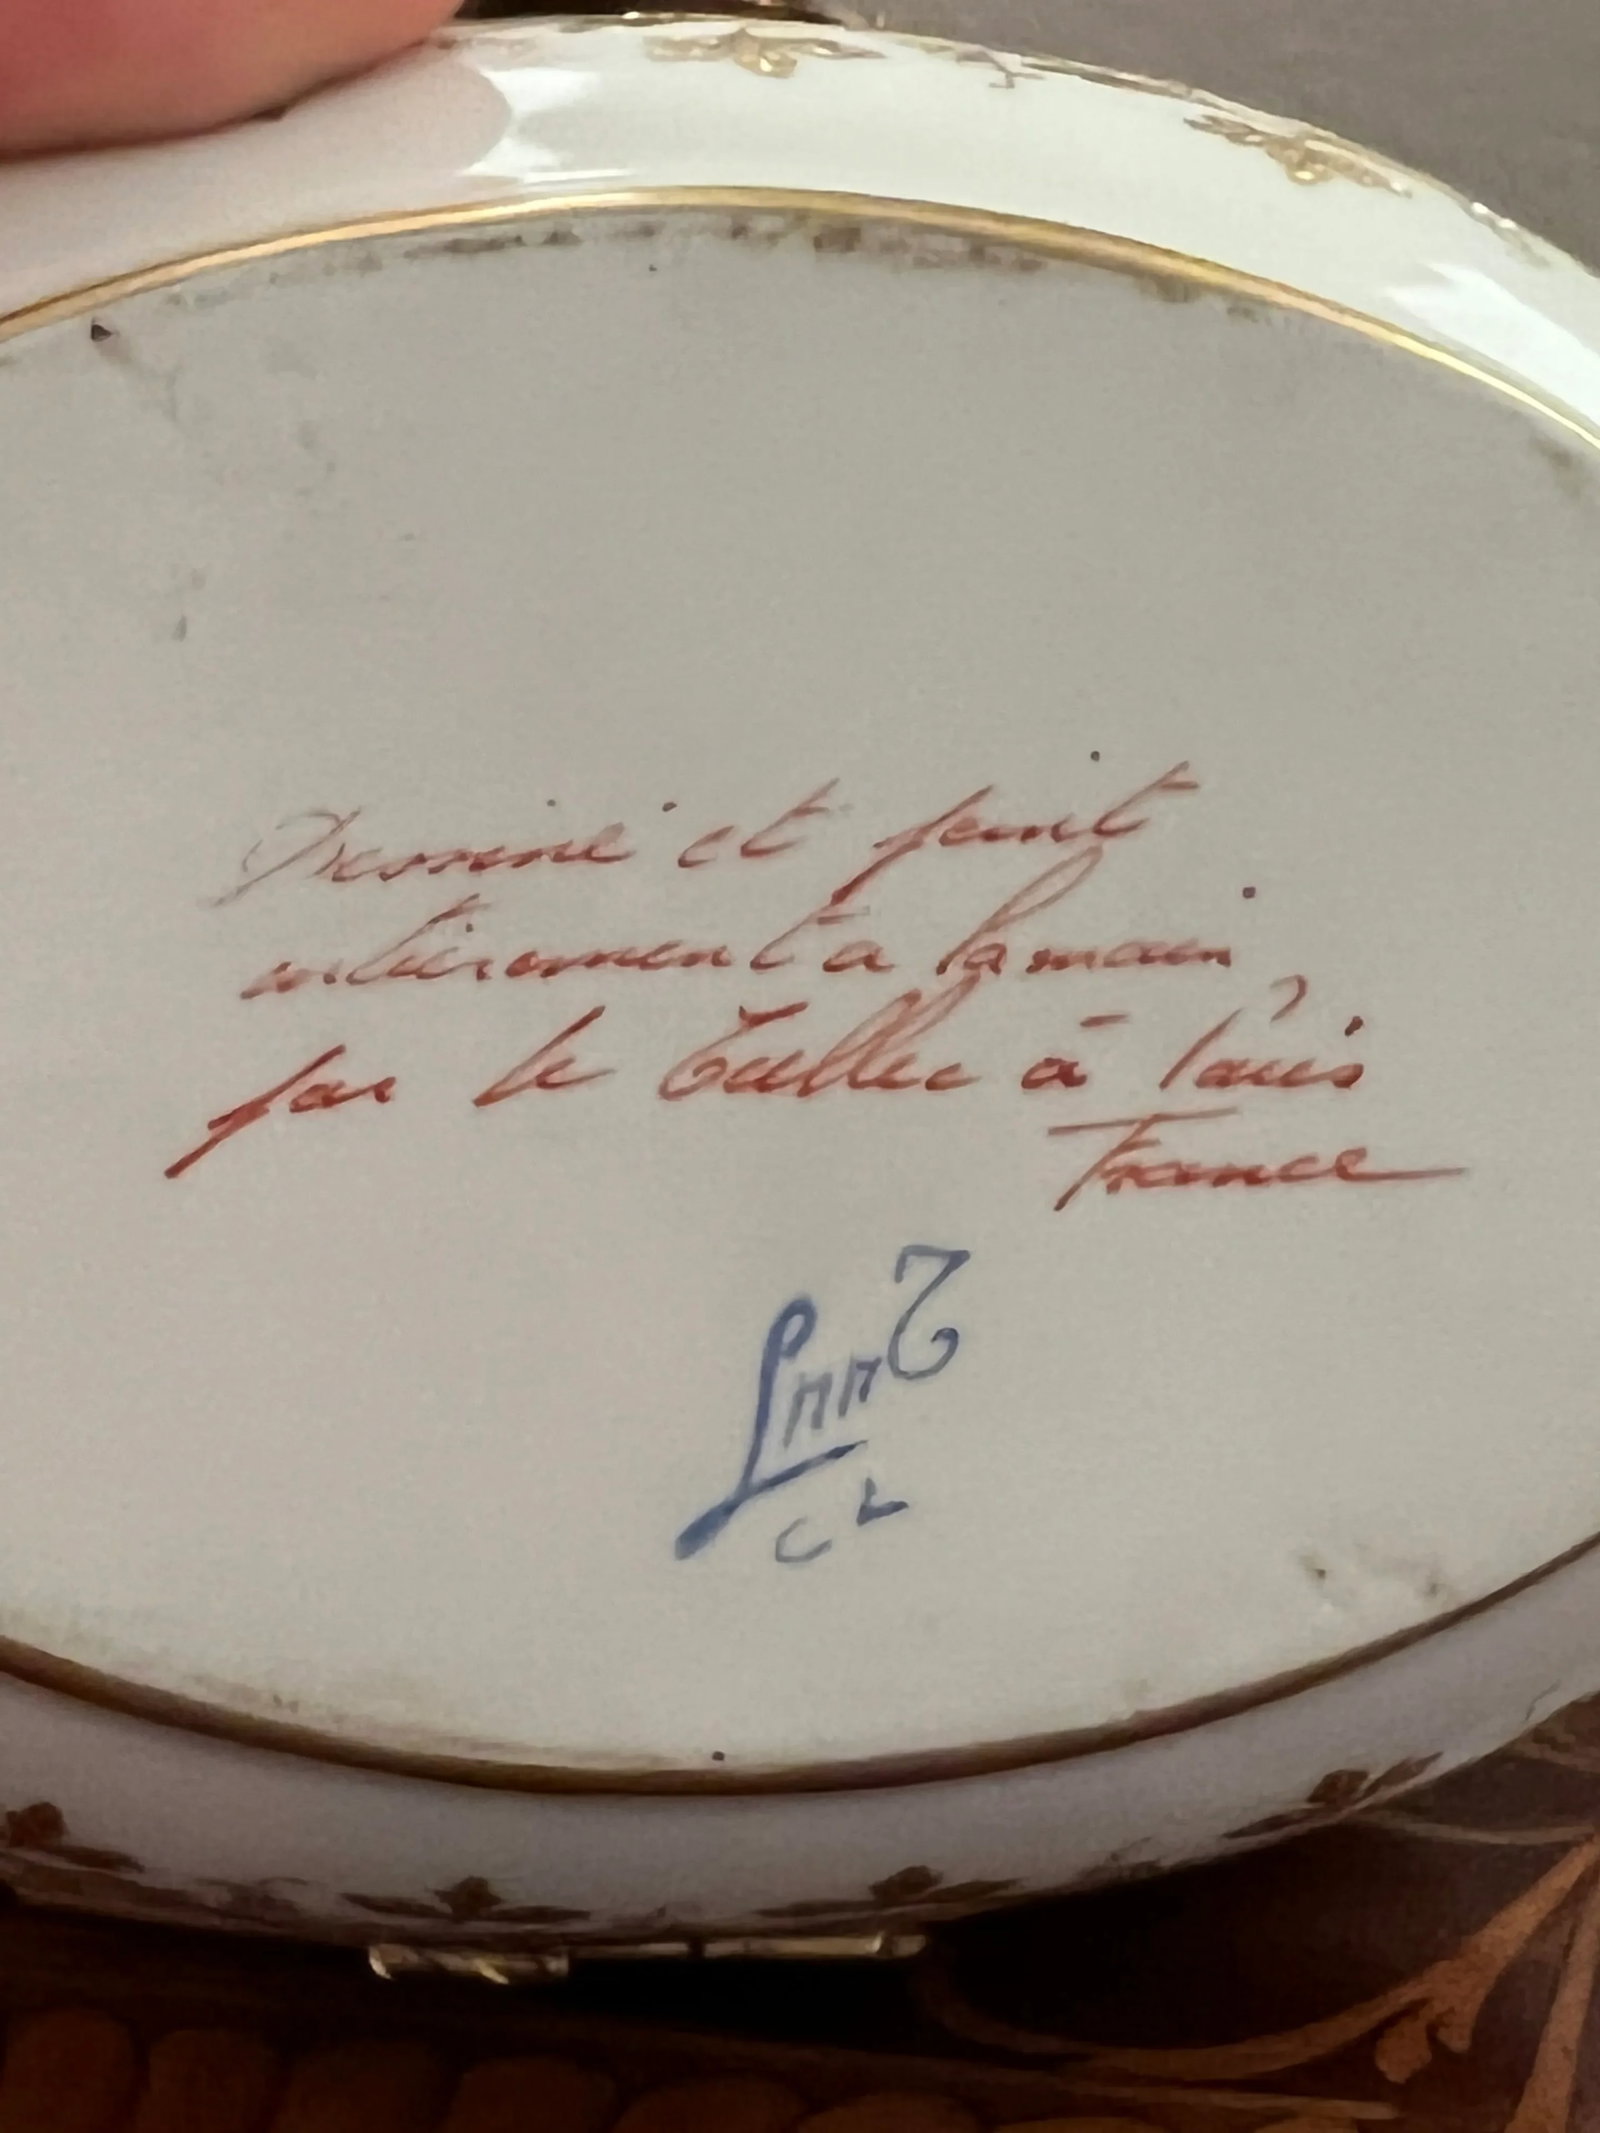 Dessiné et peint
entierement a la main
par le Tallec à Paris
France
L m m T
C L